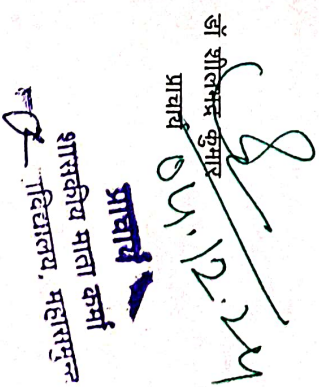 डॉ शीलभद्र कुमार
प्राचार्य
04.12.24
प्राचार्य
शासकीय माता कर्मा
महाविद्यालय, महासमुन्द